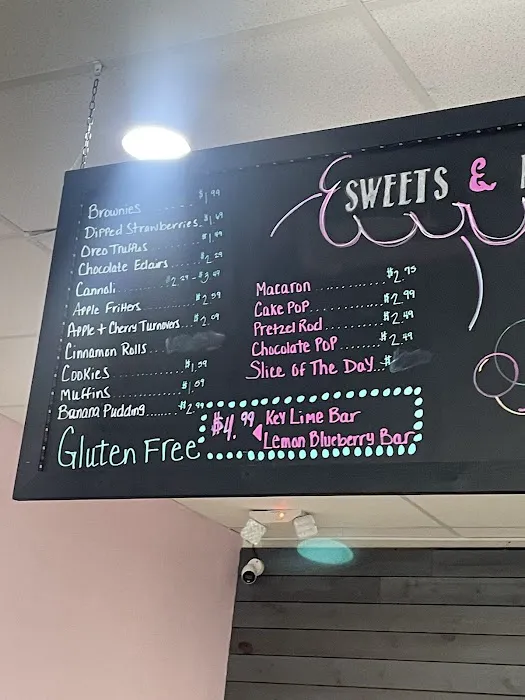 SWEETS &
Brownies ........ $1.99
Dipped Strawberries.. $1.69
Oreo Truffles ........ $1.99
Chocolate Eclairs ..... $2.29
Cannoli ........ $2.29 - $3.49
Apple Fritters ........ $2.59
Apple + Cherry Turnovers.... $2.09
Cinnamon Rolls ...
Cookies ........ $1.59
Muffins ........ $1.59
Banana Pudding........ $2.99
Macaron ............ $2.75
Cake Pop............ $2.99
Pretzel Rod ......... $2.49
Chocolate Pop....... $2.49
Slice Of The Day..$
Gluten Free
$4.99
Key Lime Bar
Lemon Blueberry Bar